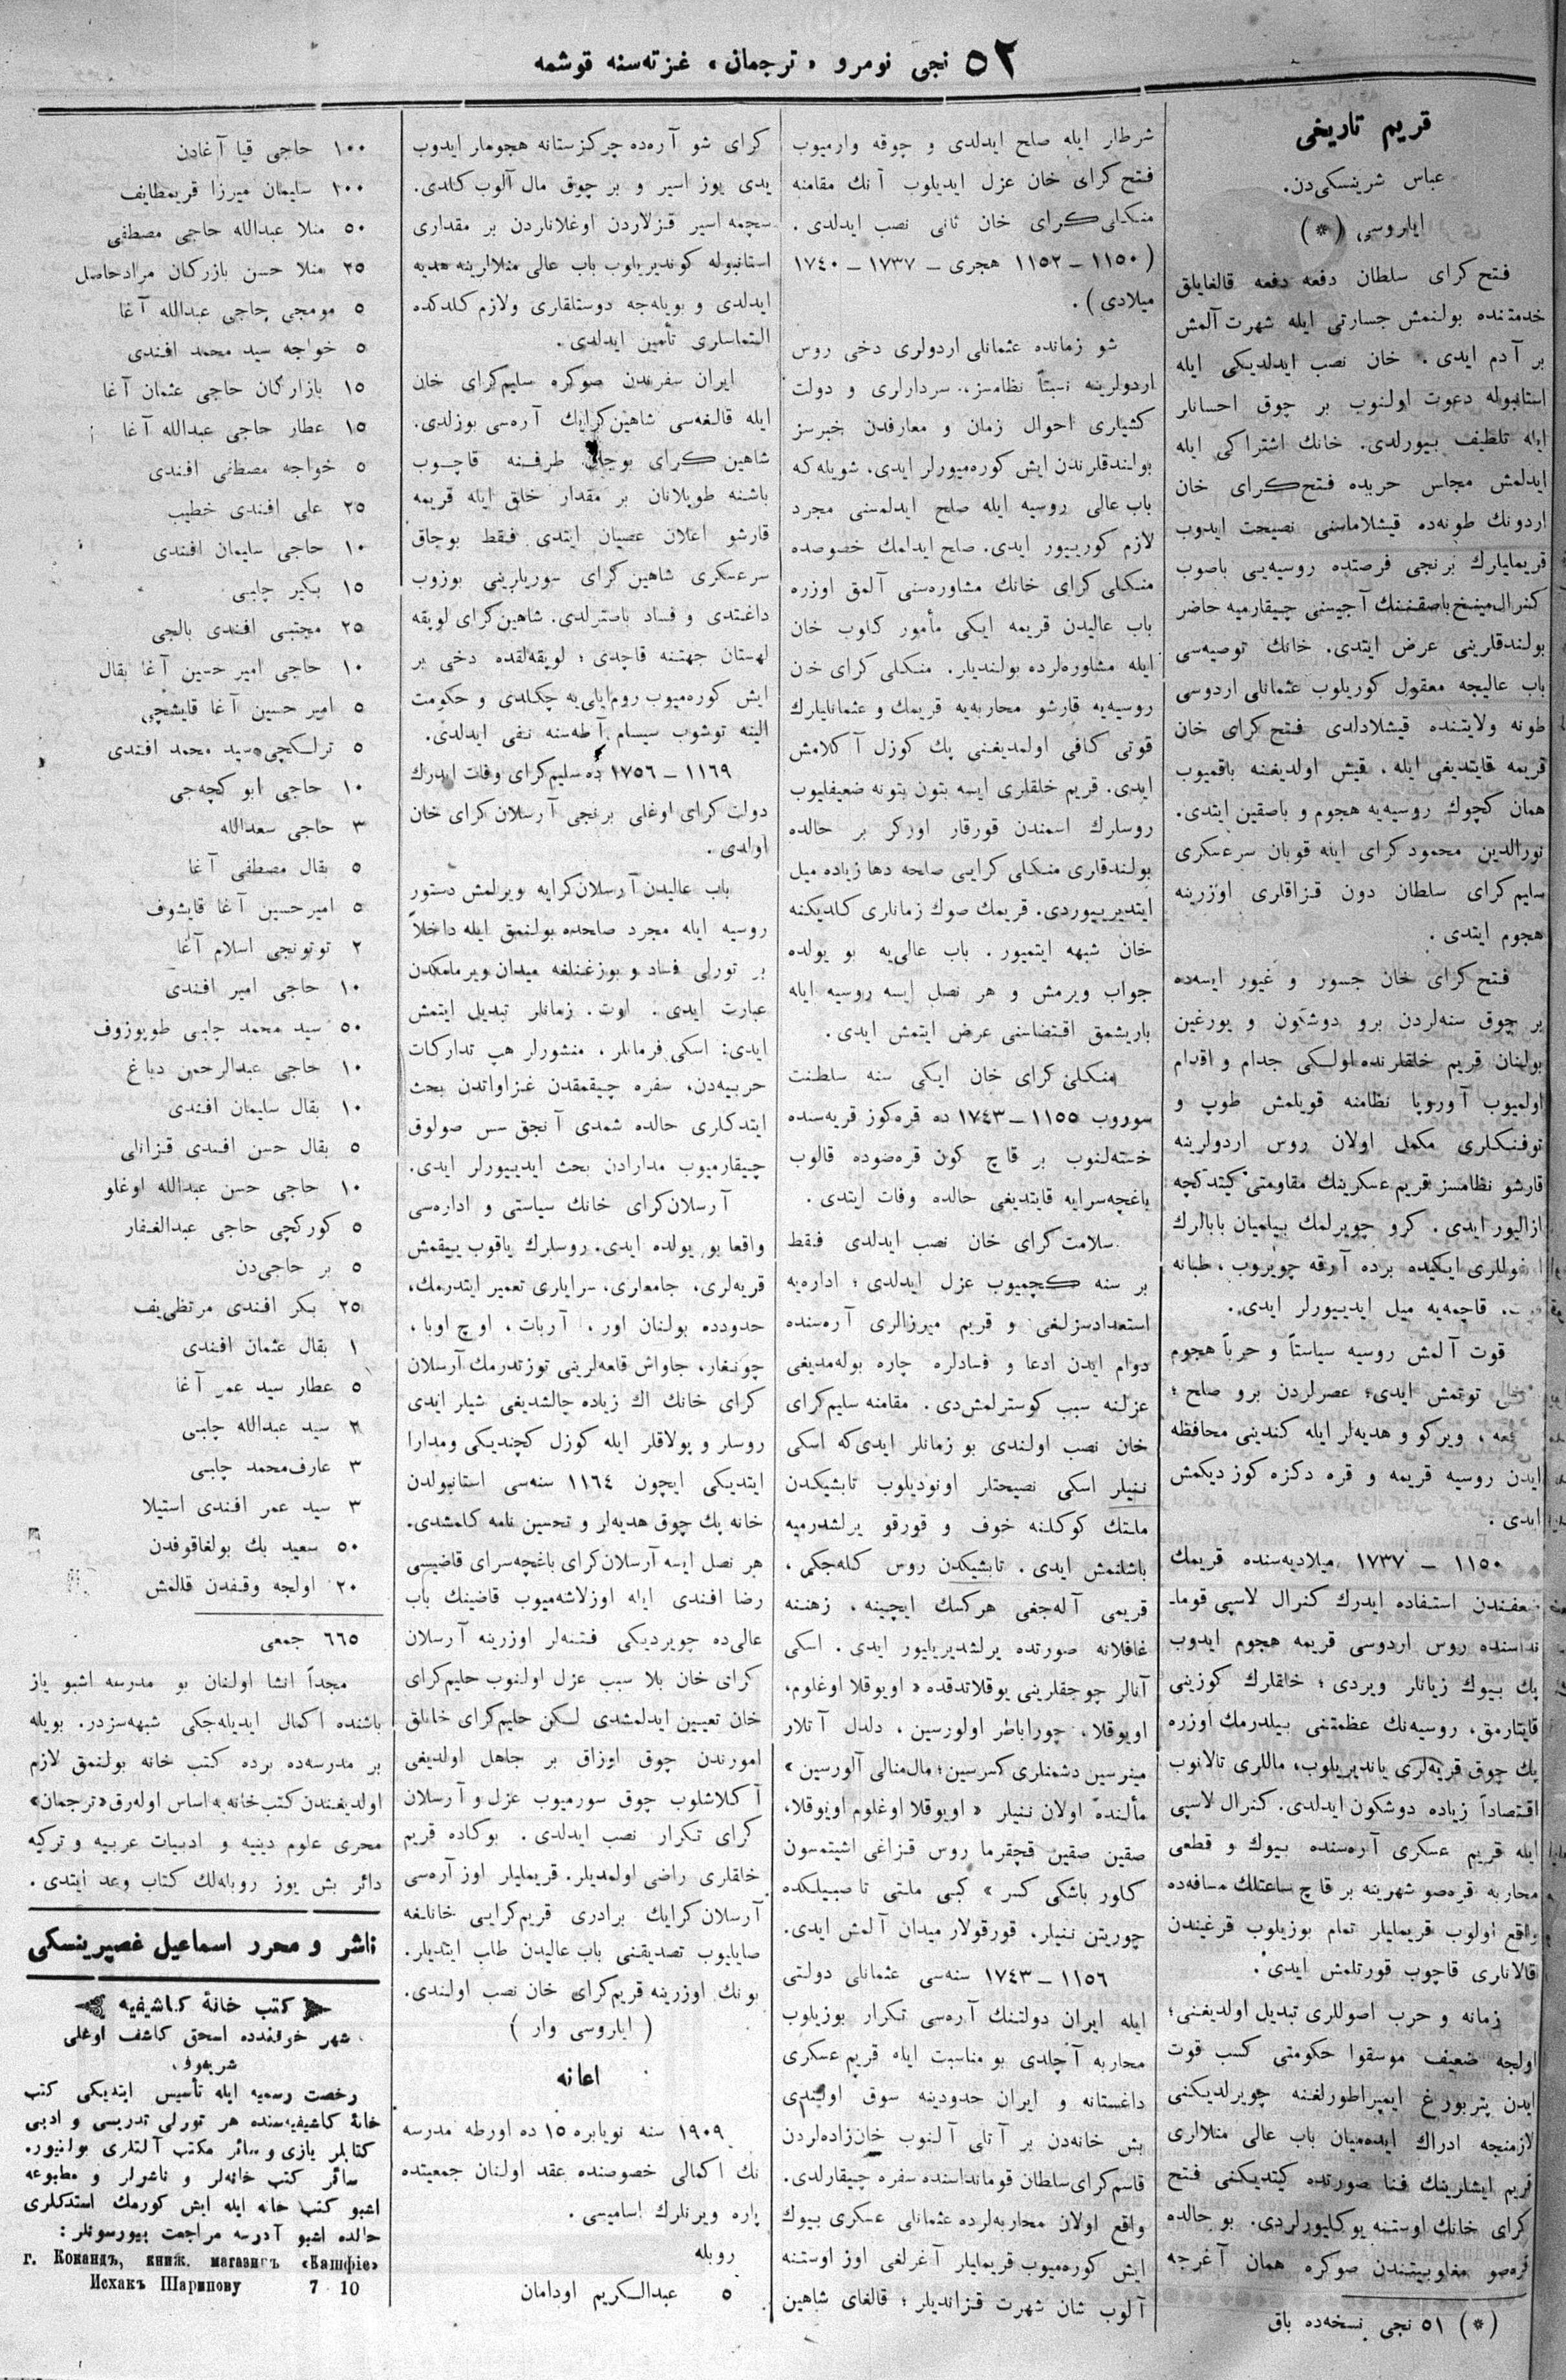 ٥٢ نجی نومرو «ترجمان» غزته‌سنه قوشمه
قریم تاریخی
عباس شرینسکی‌دن.
ایلروسی (*)
فتح کرای سلطان دفعه دفعه قالغایلق
خدمتنده بولنمش جسارتی ایله شهرت آلمش
بر آدم ایدی. خان نصب ایدلدیکی ایله
استانبوله دعوت اولنوب بر چوق احسانلر
ایله تلطیف بیورلدی. خانك اشتراکی ایله
ایدلمش مجلس حربده فتح کرای خان
اردونك طونه‌ده قیشلاماسنی نصیحت ایدوب
قریملیلرك برنجی فرصتده روسیه‌یی باصوب
کنرال مینخ باصقننك آجیسنی چیقارمیه حاضر
بولندقلرینی عرض ایتدی. خانك توصیه‌سی
باب عالیجه معقول کوریلوب عثمانلی اردوسی
طونه ولایتنده قیشلادلدی فتح کرای خان
قریمه قایتدیغی ایله، قیش اولدیغنه باقمیوب
همان کچوك روسیه‌یه هجوم و باصقین ایتدی.
نورالدین محمود کرای ایله قوبان سرعسکری
سلیم کرای سلطان دون قزاقلری اوزرینه
هجوم ایتدی.
فتح کرای خان جسور و غیور ایسه‌ده
بر چوق سنه‌لردن برو دوشکون و یورغین
بولنان قریم خلقلرنده اولکی جدام و اقدام
اولمیوب آوروپا نظامنه قویلمش طوپ و
توفنکلری مکمل اولان روس اردولرینه
قارشو نظامسز قریم عسکرینك مقاومتی کیتدکچه
ازالیور ایدی. کرو چویرلمك بیلمیان بابالرك
اوغللری ایکیده برده آرقه چویروب، طبانه
قاچمه‌یه میل ایدییورلر ایدی.
قوت آلمش روسیه سیاستاً و حرباً هجوم
توتمش ایدی؛ عصرلردن برو صلح؛
ویرکو و هدیه‌لر ایله کندینی محافظه
ایدن روسیه قریمه و قره دکزه کوز دیکمش
ایدی.
١١٥٠ — ١٧٣٧ میلادیه‌سنده قریمك
ضعفندن استفاده ایدرك کنرال لاسپی قوما-
نداسنده روس اردوسی قریمه هجوم ایدوب
پك بیوك زیانلر ویردی؛ خلقلرك کوزینی
قایتارمق، روسیه‌نك عظمتنی بیلدرمك اوزره
پك چوق قریه‌لری یاندیریلوب، ماللری تالانوب
اقتصاداً زیاده دوشکون ایدلدی. کنرال لاسپی
ایله قریم عسکری آره‌سنده بیوك و قطعی
محاربه قره‌صو شهرینه بر قاچ ساعتلك مسافه‌ده
واقع اولوب قریملیلر تمام بوزیلوب قرغیندن
قالانلری قاچوب قورتلمش ایدی.
زمانه و حرب اصوللری تبدیل اولدیغنی؛
اولجه ضعیف موسقوا حکومتی کسب قوت
ایدن پتربورغ ایمپراطورلغنه چویرلدیکنی
لازمنجه ادراك ایده‌میان باب عالی منلالری
قریم ایشلرینك فنا صورتده کیتدیکنی فتح
کرای خانك اوستنه یوکلیورلردی. بو حالده
قره‌صو مغلوبیتندن صوکره همان آغرجه
(*) ٥١ نجی نسخه‌ده باق
شرطلر ایله صلح ایدلدی و چوقه وارمیوب
فتح کرای خان عزل ایدیلوب آنك مقامنه
منکلی کرای خان ثانی نصب ایدلدی.
(١١٥٠ — ١١٥٢ هجری — ١٧٣٧ — ١٧٤٠
میلادی).
شو زمانده عثمانلی اردولری دخی روس
اردولرینه نسبتاً نظامسز، سردارلری و دولت
کشیلری احوال زمان و معارفدن خبرسز
بولندقلرندن ایش کوره‌میورلر ایدی، شویله که
باب عالی روسیه ایله صلح ایدلمسنی مجرد
لازم کورییور ایدی. صلح ایدلمك خصوصده
منکلی کرای خانك مشاوره‌سنی آلمق اوزره
باب عالیدن قریمه ایکی مأمور کلوب خان
ایله مشاوره‌لرده بولندیلر. منکلی کرای خان
روسیه‌یه قارشو محاربه‌یه قریمك و عثمانلیلرك
قوتی کافی اولمدیغنی پك کوزل آکلامش
ایدی. قریم خلقلری ایسه بتون بتونه ضعیفلیوب
روسلرك اسمندن قورقار اورکر بر حالده
بولندقلری منکلی کرایی صلحه دها زیاده میل
ایتدیرییوردی. قریمك صوك زمانلری کلدیکنه
خان شبهه ایتمیور. باب عالی‌یه بو یولده
جواب ویرمش و هر نصل ایسه روسیه ایله
باریشمق اقتضاسنی عرض ایتمش ایدی.
منکلی کرای خان ایکی سنه سلطنت
سوروب ١١٥٥ — ١٧٤٣ ده قره‌کوز قریه‌سنده
خسته‌لنوب بر قاچ کون قره‌صوده قالوب
باغچه‌سرایه قایتدیغی حالده وفات ایتدی.
سلامت کرای خان نصب ایدلدی فقط
بر سنه کچمیوب عزل ایدلدی؛ اداره‌یه
استعدادسزلغی و قریم میرزالری آره‌سنده
دوام ایدن ادعا و فسادلره چاره بوله‌مدیغی
عزلنه سبب کوسترلمش‌دی. مقامنه سلیم کرای
خان نصب اولندی بو زمانلر ایدی‌که اسکی
ننیلر اسکی نصیحتلر اونودیلوب تابشیکدن
ملتك کوکلنه خوف و قورقو یرلشدرمیه
باشلنمش ایدی. تابشیکدن روس کله‌جکی،
قریمی آله‌جغی هرکسك ایچینه، زهننه
غافلانه صورتده یرلشدیریلیور ایدی. اسکی
آنالر چوجقلرینی یوقلاتدقده «اویوقلا اوغلوم،
اویوقلا، چوراباطر اولورسین، دلدل آتلار
مینرسین دشمنلری کسرسین؛ مال منالی آلورسین»
مألنده اولان ننیلر «اویوقلا اوغلوم اویوقلا،
صقین صقین قچقرما روس قزاغی اشیتمسون
کاور باشکی کسر» کبی ملتی تا صبیلکده
چوریتن ننیلر، قورقولار میدان آلمش ایدی.
١١٥٦ — ١٧٤٣ سنه‌سی عثمانلی دولتی
ایله ایران دولتنك آره‌سی تکرار بوزیلوب
محاربه آچلدی بو مناسبت ایله قریم عسکری
داغستانه و ایران حدودینه سوق اولندی
بش خانه‌دن بر آتلی آلنوب خان‌زاده‌لردن
قاسم کرای سلطان قومانداسنده سفره چیقارلدی.
واقع اولان محاربه‌لرده عثمانلی عسکری بیوك
ایش کوره‌میوب قریملیلر آغرلغی اوز اوستنه
آلوب شان شهرت قزاندیلر؛ قالغای شاهین
کرای شو آره‌ده چرکزستانه هجوملر ایدوب
یدی یوز اسیر و بر چوق مال آلوب کلدی.
سچمه اسیر قزلاردن اوغلانلردن بر مقداری
استانبوله کوندیریلوب باب عالی منلالرینه هدیه
ایدلدی و بویله‌جه دوستلقلری ولازم کلدکده
التماسلری تأمین ایدلدی.
ایران سفرندن صوکره سلیم کرای خان
ایله قالغه‌سی شاهین کرایك آره‌سی بوزلدی.
شاهین کرای بوجاق طرفنه قاچوب
باشنه طوپلانان بر مقدار خلق ایله قریمه
قارشو اعلان عصیان ایتدی فقط بوجاق
سرعسکری شاهین کرای سوریلرینی بوزوب
داغتدی و فساد باصدرلدی. شاهین کرای لویقه
لهستان جهتنه قاچدی؛ لویقه‌لقده دخی بر
ایش کوره‌میوب روم‌ایلی‌یه چکلدی و حکومت
الینه توشوب سیسام آطه‌سنه نفی ایدلدی.
١١٦٩ — ١٧٥٦ ده سلیم کرای وفات ایدرك
دولت کرای اوغلی برنجی آرسلان کرای خان
اولدی.
باب عالیدن آرسلان کرایه ویرلمش دستور
روسیه ایله مجرد صلحده بولنمق ایله داخلاً
بر تورلی فساد و بوزغنلغه میدان ویرمامکدن
عبارت ایدی. اوت. زمانلر تبدیل ایتمش
ایدی: اسکی فرمانلر، منشورلر هپ تدارکات
حربیه‌دن، سفره چیقمقدن غزاواتدن بحث
ایتدکلری حالده شمدی آنجق سس صولوق
چیقارمیوب مدارادن بحث ایدییورلر ایدی.
آرسلان کرای خانك سیاستی و اداره‌سی
واقعا بو یولده ایدی. روسلرك یاقوب ییقمش
قریه‌لری، جامعلری، سرایلری تعمیر ایتدرمك،
حدودده بولنان اور، آربات، اوچ اوبا،
چونغار، جاواش قلعه‌لرینی توزتدرمك آرسلان
کرای خانك اك زیاده چالشدیغی شیلر ایدی
روسلر و پولاقلر ایله کوزل کچندیکی ومدارا
ایتدیکی ایچون ١١٦٤ سنه‌سی استانبولدن
خانه پك چوق هدیه‌لر و تحسین نامه کلمشدی.
هر نصل ایسه آرسلان کرای باغچه‌سرای قاضیسی
رضا افندی ایله اوزلاشه‌میوب قاضینك باب
عالی‌ده چویردیکی فتنه‌لر اوزرینه آرسلان
کرای خان بلا سبب عزل اولنوب حلیم کرای
خان تعیین ایدلمشدی لکن حلیم کرای خانلق
امورندن چوق اوزاق بر جاهل اولدیغی
آکلاشلوب چوق سورمیوب عزل و آرسلان
کرای تکرار نصب ایدلدی. بوکاده قریم
خلقلری راضی اولمدیلر. قریملیلر اوز آره‌سی
آرسلان کرایك برادری قریم کرایی خانلغه
صایلیوب تصدیقنی باب عالیدن طلب ایتدیلر.
بونك اوزرینه قریم کرای خان نصب اولندی.
(ایلروسی وار)
اعانه
١٩٠٩ سنه نویابره ١٥ ده اورطه مدرسه
نك اکمالی خصوصنده عقد اولنان جمعیتده
پاره ویرنلرك اسامیسی.
روبله
٥ عبدالکریم اودامان
١٠٠ حاجی قیا آغادن
١٠٠ سلیمان میرزا قریمطایف
٥٠ منلا عبدالله حاجی مصطفی
٢٥ منلا حسن بازرکان مرادحاصل
٥ مومجی حاجی عبدالله آغا
٥ خواجه سید محمد افندی
١٥ بازارکان حاجی عثمان آغا
١٥ عطار حاجی عبدالله آغا
٥ خواجه مصطفی افندی
٢٥ علی افندی خطیب
١٠ حاجی سلیمان افندی
١٥ بکیر چلبی
٢٥ مجتبی افندی بالجی
١٠ حاجی امیر حسین آغا بقال
٥ امیر حسین آغا قایشچی
٥ ترلکچی سید محمد افندی
١٠ حاجی ابو کچه‌جی
٣ حاجی سعدالله
٥ بقال مصطفی آغا
٥ امیرحسین آغا قایشوف
٢ توتونجی اسلام آغا
١٠ حاجی امیر افندی
٥٠ سید محمد چلبی طوپوزوف
١٠ حاجی عبدالرحمن دباغ
١٠ بقال سلیمان افندی
٥ بقال حسن افندی قزانلی
١٠ حاجی حسن عبدالله اوغلو
٥ کورکچی حاجی عبدالغفار
٥ بر حاجی‌دن
٢٥ بکر افندی مرتظی‌یف
١ بقال عثمان افندی
٥ عطار سید عمر آغا
سید عبدالله چلبی
٣ عارف محمد چلبی
٣ سید عمر افندی استیلا
٥٠ سعید بك بولغاقوفدن
٢٠ اولجه وقفدن قالمش
٦٦٥ جمعی
مجدداً انشا اولنان بو مدرسه اشبو یاز
باشنده اکمال ایدیله‌جکی شبهه‌سزدر. بویله
بر مدرسه‌ده برده کتب خانه بولنمق لازم
اولدیغندن کتب‌خانه‌یه اساس اوله‌رق «ترجمان»
محرری علوم دینیه و ادبیات عربیه و ترکیه
دائر بش یوز روبله‌لك کتاب وعد ایتدی.
ناشر و محرر اسماعیل غصپرینسکی
کتب خانهٔ کاشیفیه
شهر خوقندده اسحق کاشف اوغلی
شریفوف
رخصت رسمیه ایله تأسیس ایتدیکی کتب
خانهٔ کاشیفیه‌سنده هر تورلی تدریسی و ادبی
کتابلر یازی و سائر مکتب آلتلری بولنیور.
سائر کتب خانه‌لر و ناشرلر و مطبوعه
اشبو کتب خانه ایله ایش کورمك استدکلری
حالده اشبو آدرسه مراجعت بیورسونلر:
г. Кокандъ, книж. магазинъ «Кашфіе»
Исхакъ Шарипову 7 10